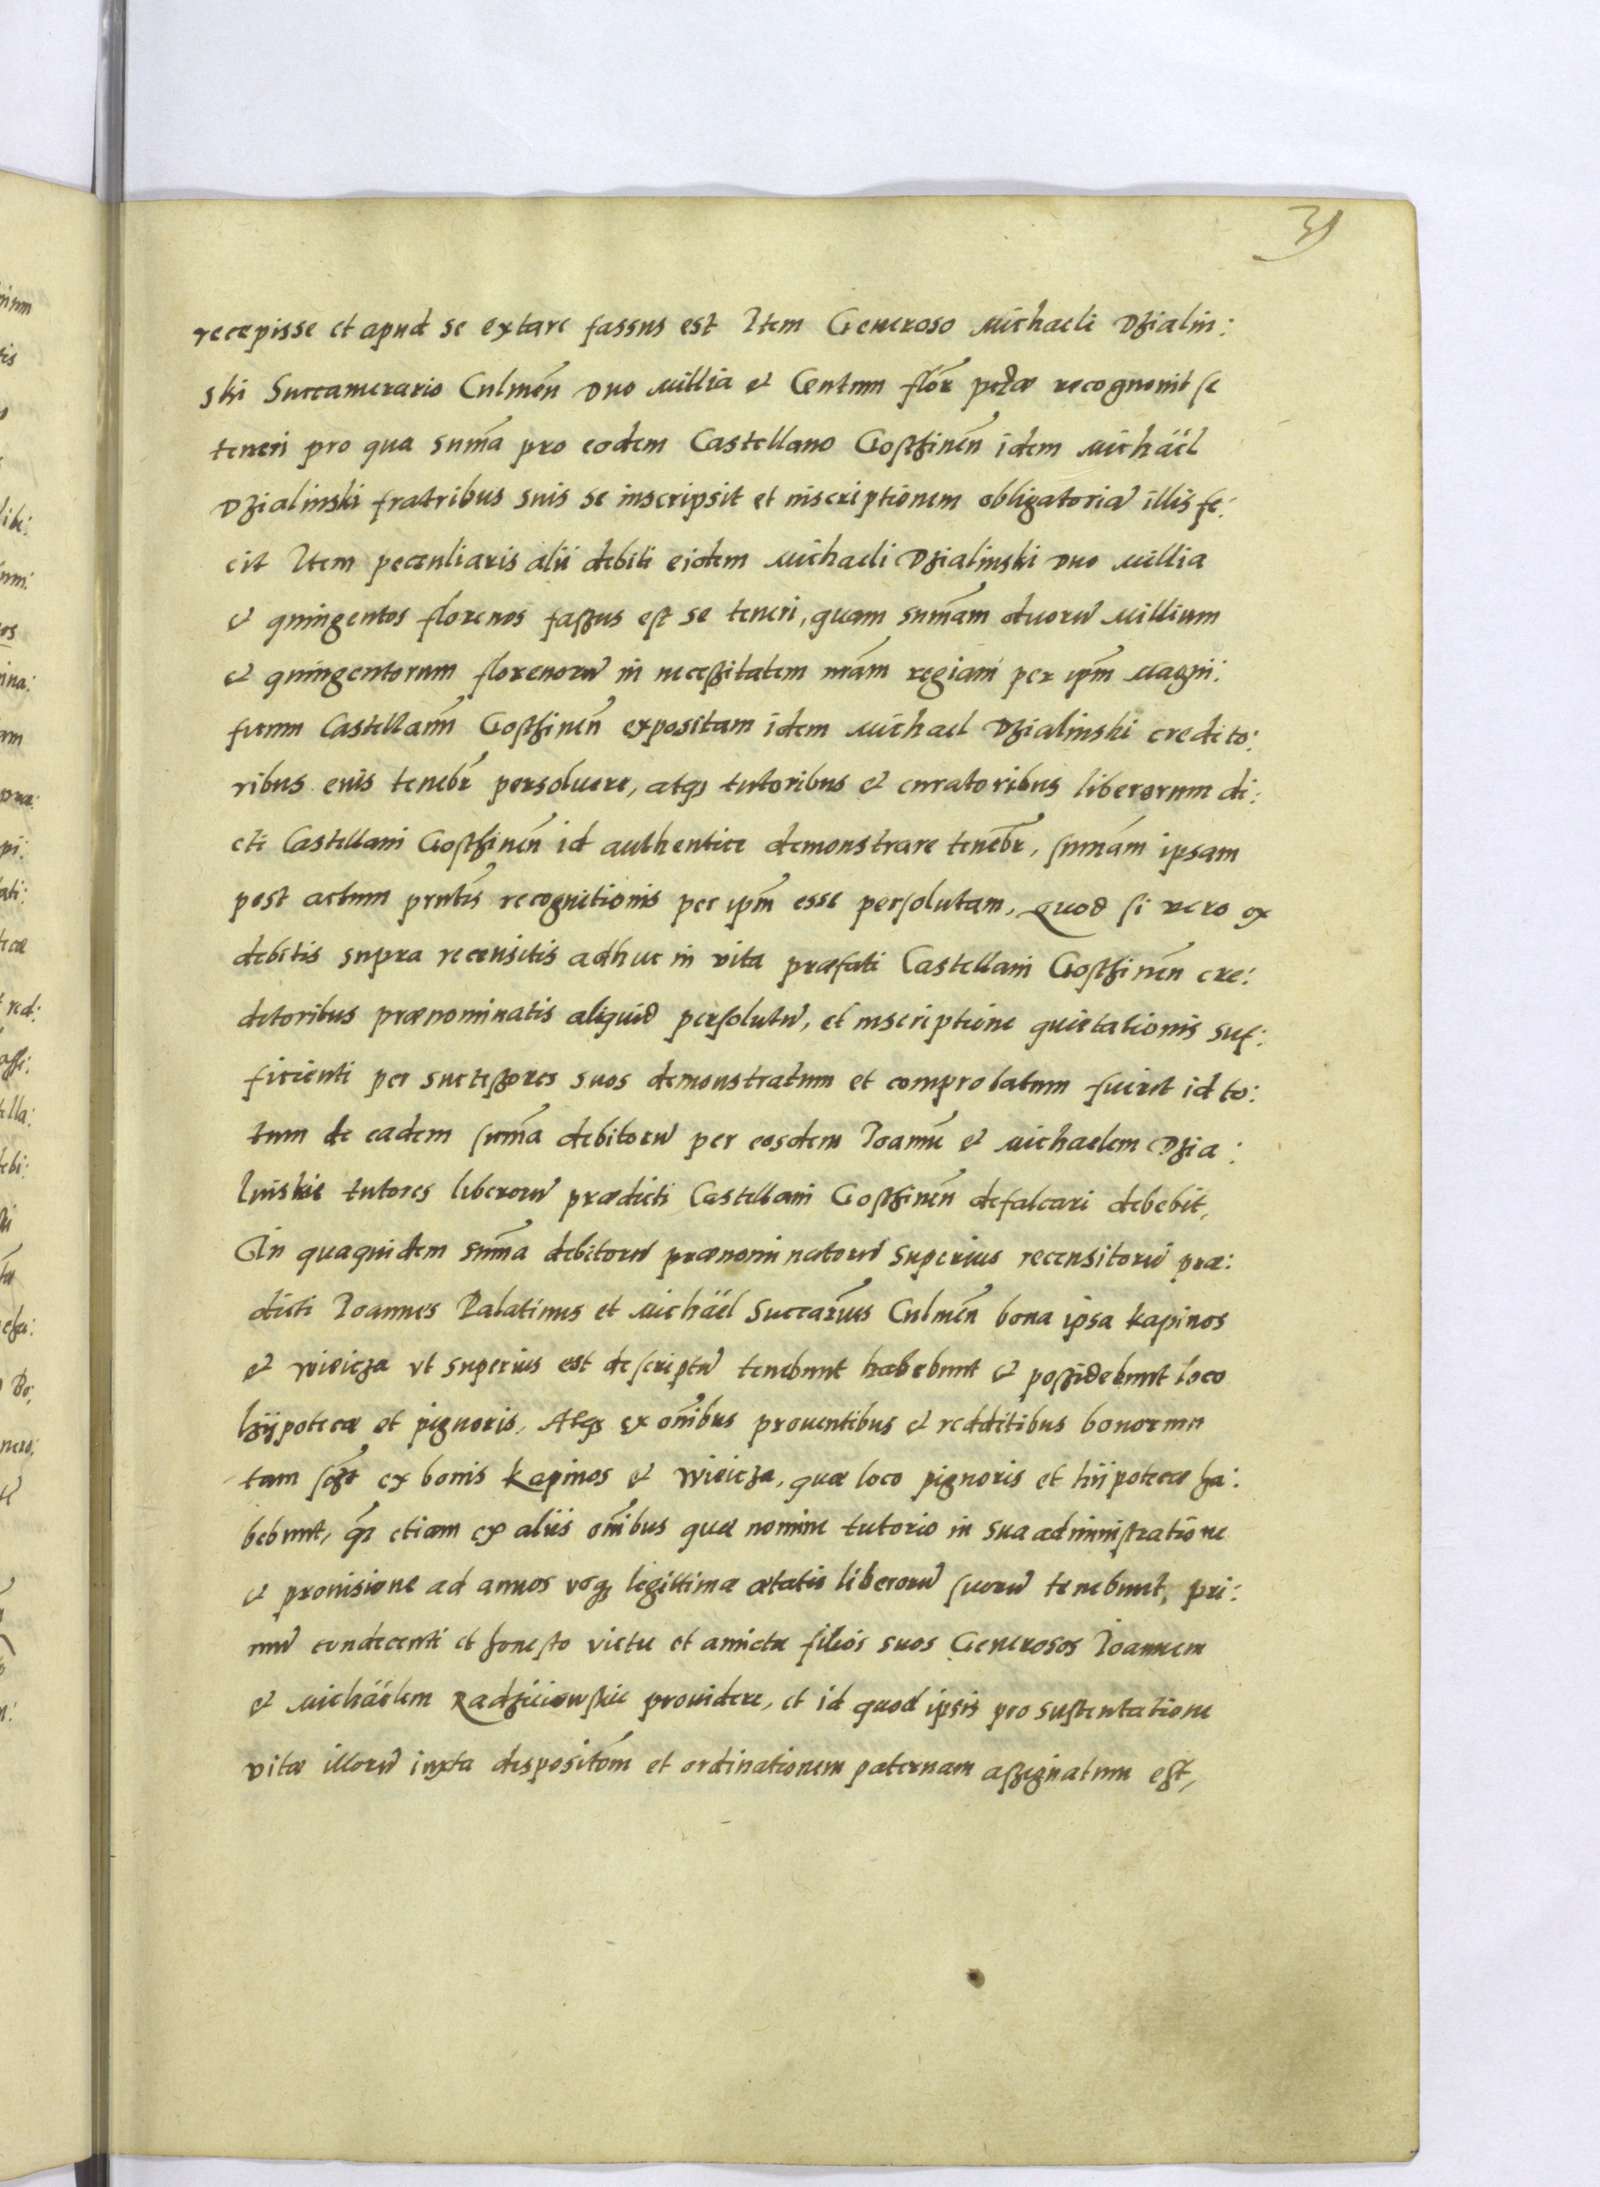 31
recepisse et apud se extare fassus est Item Generoso Michaeli Dzialin:
ski Succamerario Culmeñ Duo Millia et Centum flor̃ recognouit se
teneri pro qua sum̃a pro eodem Castellano Gostinen̄ idem Michäel
Dzialinski fratribus suis se inscripsit et inscriptionem obligatoriã illis fe:
cit Item peculiaris alii debiti eidem Michaeli Dzialinski Duo Millia
et quingentos florenos fassus est se teneri, quam sum̃am duorũ Millium
et quingentorum florenorũ in necessitatem nr̃am regiam per ip̃m Magni:
ficum Castellanũ Gostinen̄ expositam idem Michael Dzialinski credito:
ribus eius tenebr̃ persoluere, atq; tutoribus et curatoribus liberorum di:
cti Castellani Gostinen̄ id authentice demonstrare tenebr̃, sum̃am ipsam
post actum pr̃ntis recognitionis per ip̃m esse persolutam, Quod si vero ex
debitis supra recensitis adhuc in vita præfati Castellani Gostinen̄ cre:
ditoribus prænominatis aliquid persolutũ, et inscriptione quietationis suf:
ficienti per successores suos demonstratum et comprobatum fuerit id to:
tum de eadem sum̃a debitorũ per eosdem Ioannẽ et Michaelem Dzia:
linskie tutores liberorũ prædicti Castellani Gostinen̄ defalcari debebit,
In quaquidem sum̃a debitorũ prænominatorũ superius recensitorũ præ:
dicti Ioannes Palatinus et Michäel Succar̃ius Culmen̄ bona ipsa Kapinos
et Wieicza vt superius est descriptũ tenebunt habebunt et possidebunt loco
hypotecæ et pignoris, Atq; ex om̃ibus prouentibus et redditibus bonorum
tam ex bonis Kapinos et Wieicza, quæ loco pignoris et hypotecæ ha:
bebunt, q̃ etiam ex aliis om̃ibus quæ nomine tutorio in sua administratione
et prouisione ad annos vsq; legittimæ ætatis liberorũ suorũ tenebunt, pri:
mũ condecenti et honesto victu et amictu filios suos Generosos Ioannem
et Michäelem Radzieiowskie prouidere, et id quod ipsis pro sustentatione
vitæ illorũ iuxta dispositõm et ordinationem paternam assignatum est,